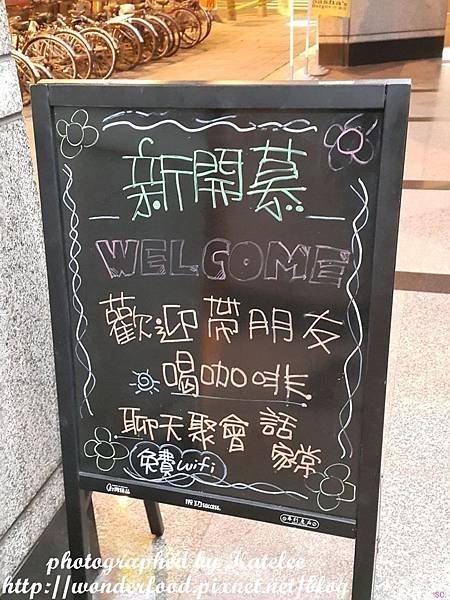 Sasha's
新開幕
WELCOME
歡迎帶朋友
喝咖啡
聊天聚會 話
家常
免費wifi
成功success.
photographed by Katelee
http://wonderfood.pixnet.net/blog